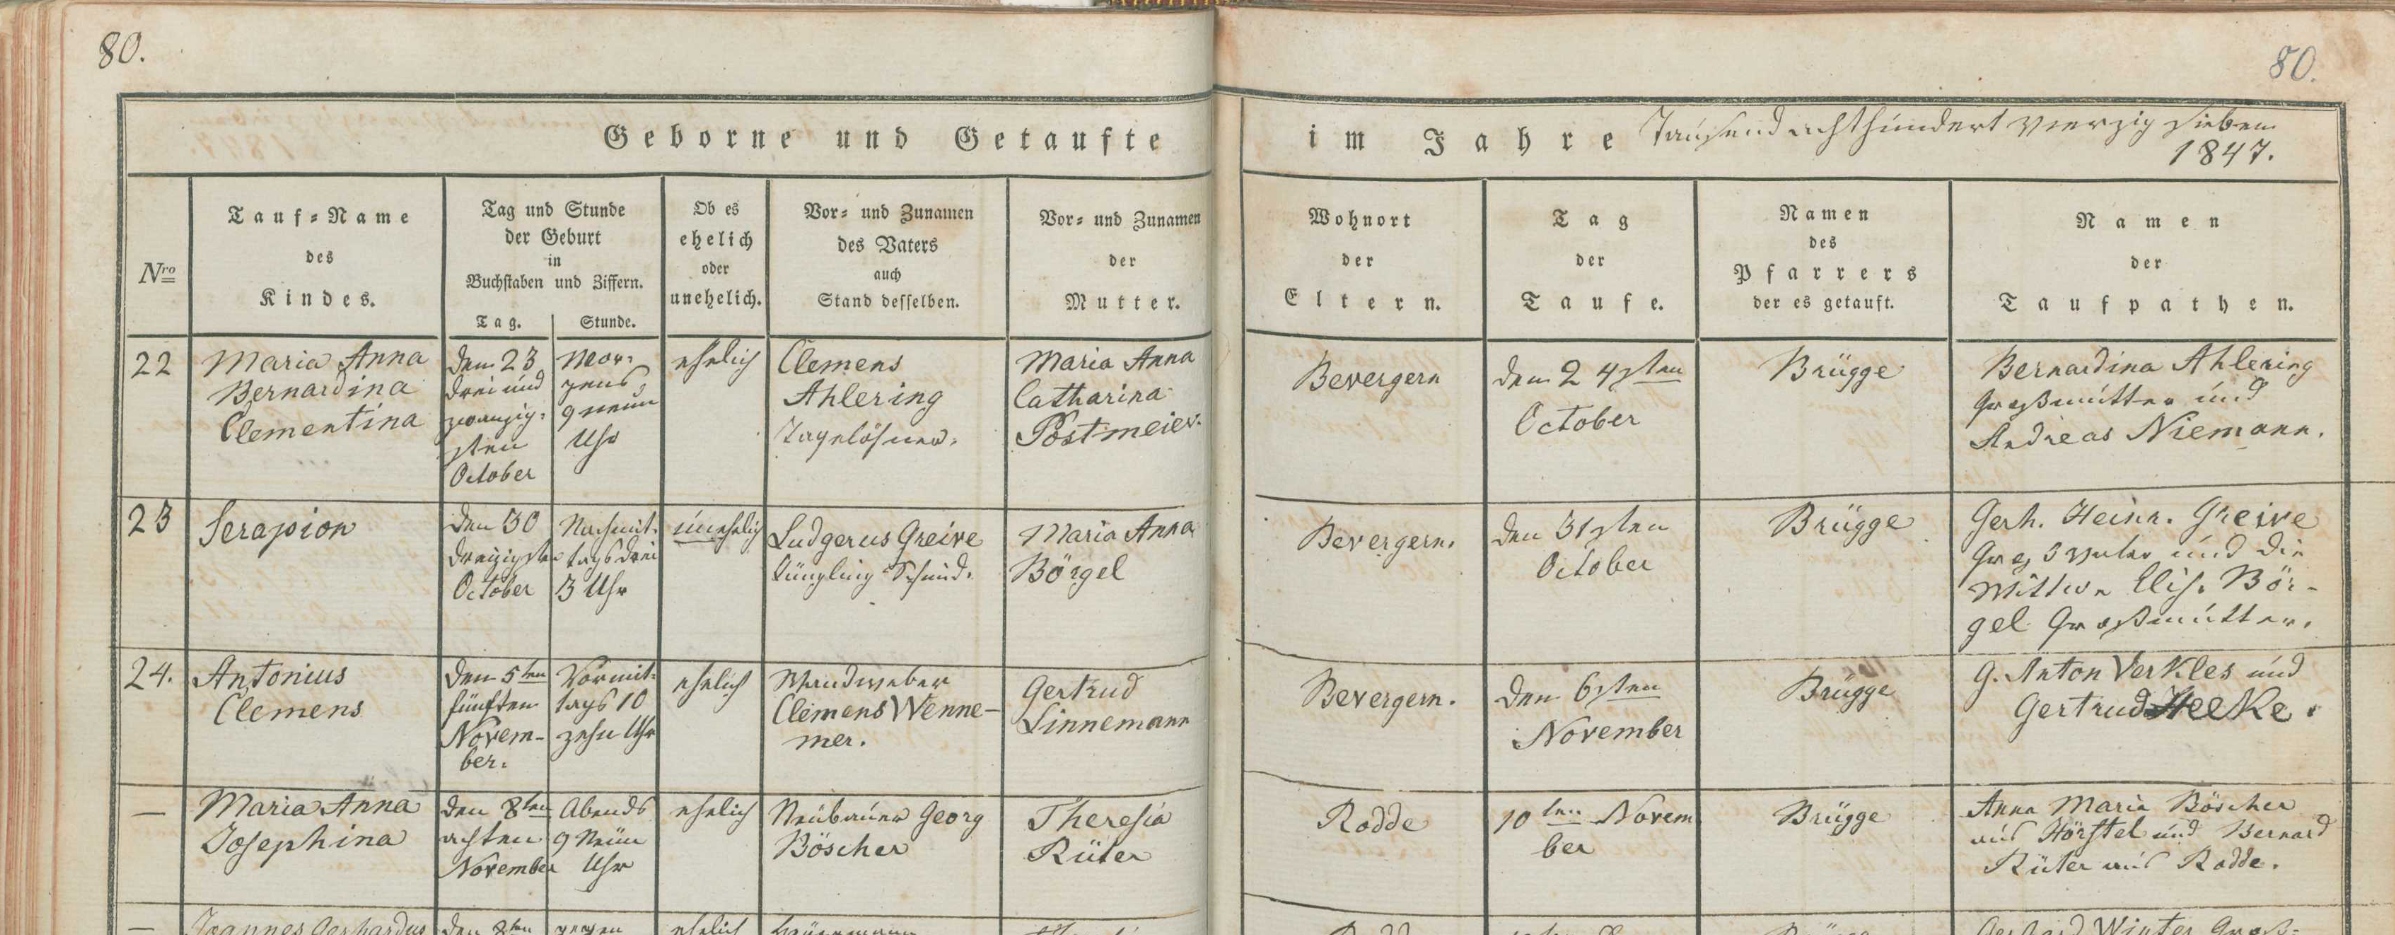 80.
80.
Geborne und Getaufte
im Jahre Tausend achthundert vierzig sieben
1847.
Nro
Tauf=Name
des
Kindes.
Tag und Stunde
der Geburt
in
Buchstaben und Ziffern.
Tag.
Stunde.
Ob es
ehelich
oder
unehelich.
Vor= und Zunamen
des Vaters
auch
Stand desselben.
Vor= und Zunamen
der
Mutter.
Wohnort
der
Eltern.
Tag
der
Taufe.
Namen
des
Pfarrers
der es getauft.
Namen
der
Taufpathen.
22
Maria Anna
Bernardina
Clementina
den 23
drei und
zwanzig=
sten
October
Mor=
gens
9 neun
Uhr
ehelich
Clemens
Ahlering
Tagelöhner.
Maria Anna
Catharina
Postmeier.
Bevergern
den 24sten
October
Brügge
Bernardina Ahlering
Großmutter und
Andreas Niemann.
23
Serapion
den 30
dreizigsten
October
Nachmit=
tags drei
3 Uhr
unehelich
Ludgerus Greive
Jüngling Schmid.
Maria Anna
Börgel
Bevergern.
den 31sten
October
Brügge
Gerh. Heinr. Greive
Großvater und die
Wittwe Elis. Bör-
gel Großmutter.
24.
Antonius
Clemens
den 5ten
fünften
Novem-
ber.
Vormit=
tags 10
zehn Uhr
ehelich
Wandweber
Clemens Wenne-
mer.
Gertrud
Linnemann
Bevergern.
den 6sten
November
Brügge
G. Anton Verkles und
Gertrud Heeke.
—
Maria Anna
Josephina
den 8ten
achten
November
Abends
9 Neun
Uhr
ehelich
Neubauer Georg
Böscher
Theresia
Rüter
Rodde
10ten Novem
ber
Brügge
Anna Maria Böscher
aus Hörstel und Bernard
Rüter aus Rodde.
—
Joannes Gerhardus
den 8ten
gegen
ehelich
Gerhard Winter Groß-